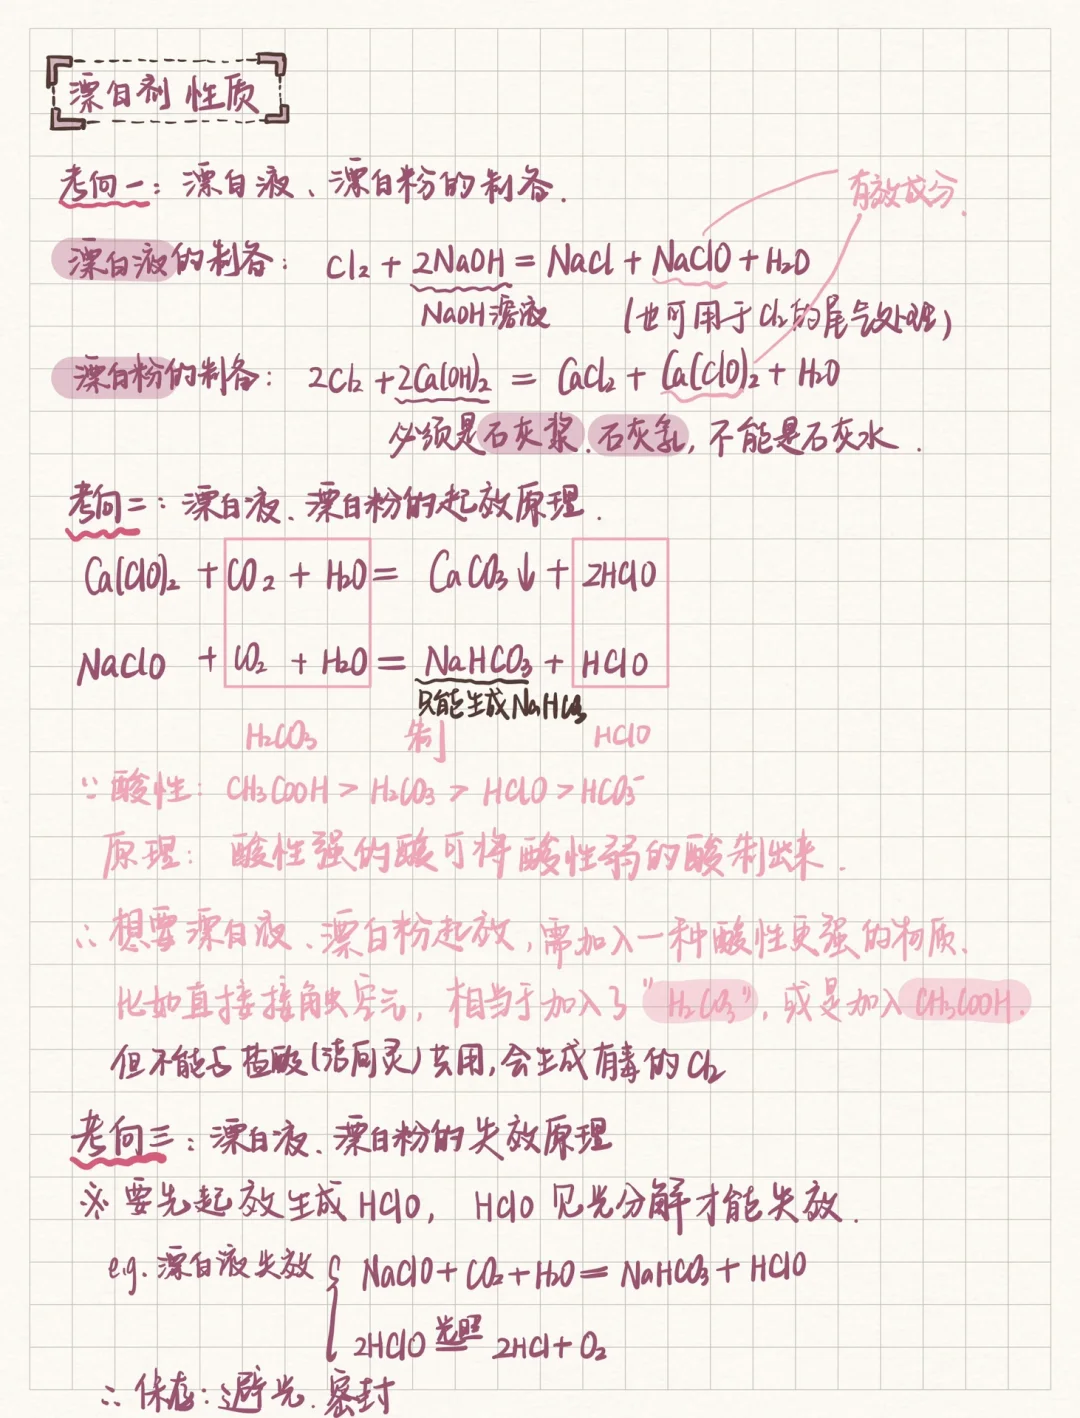 漂白剂 性质
考向一：漂白液、漂白粉的制备.
有效成分.
漂白液的制备： Cl₂ + 2NaOH = NaCl + NaClO + H₂O
NaOH溶液 (也可用于Cl₂的尾气处理)
漂白粉的制备： 2Cl₂ + 2Ca(OH)₂ = CaCl₂ + Ca(ClO)₂ + H₂O
必须是石灰浆、石灰乳, 不能是石灰水.
考向二：漂白液、漂白粉的起效原理.
Ca(ClO)₂ + CO₂ + H₂O = CaCO₃↓ + 2HClO
NaClO + CO₂ + H₂O = NaHCO₃ + HClO
只能生成NaHCO₃
H₂CO₃ 制 HClO
∵酸性： CH₃COOH > H₂CO₃ > HClO > HCO₃⁻
原理： 酸性强的酸可将酸性弱的酸制出来.
∴想要漂白液、漂白粉起效, 需加入一种酸性更强的物质.
比如直接接触空气, 相当于加入了"H₂CO₃", 或是加入CH₃COOH.
但不能与盐酸(洁厕灵)共用, 会生成有毒的Cl₂
考向三：漂白液、漂白粉的失效原理
※ 要先起效生成HClO, HClO见光分解才能失效.
e.g. 漂白液失效 { NaClO + CO₂ + H₂O = NaHCO₃ + HClO
2HClO 光照 = 2HCl + O₂
∴保存：避光.密封